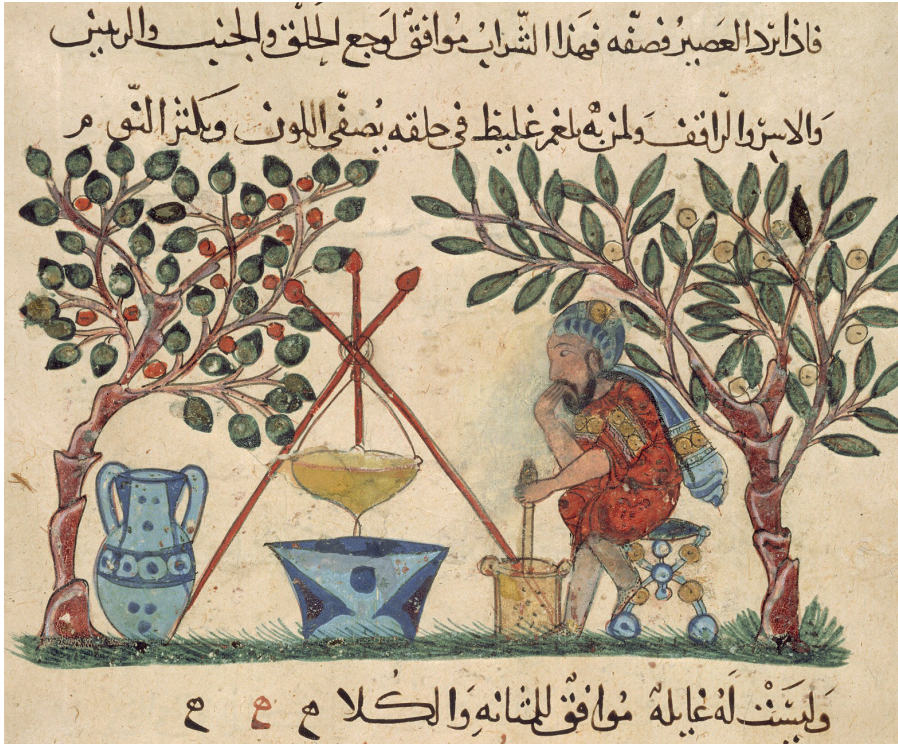 فاذا برد العصير فصفه فهذا الشراب موافق لوجع الحلق والجنب
ولمن به بلغم غليظ في حلقه يصفي اللون ويكثر النوم
وليست له غايلة موافق للمثانه والكلا ح ح ح